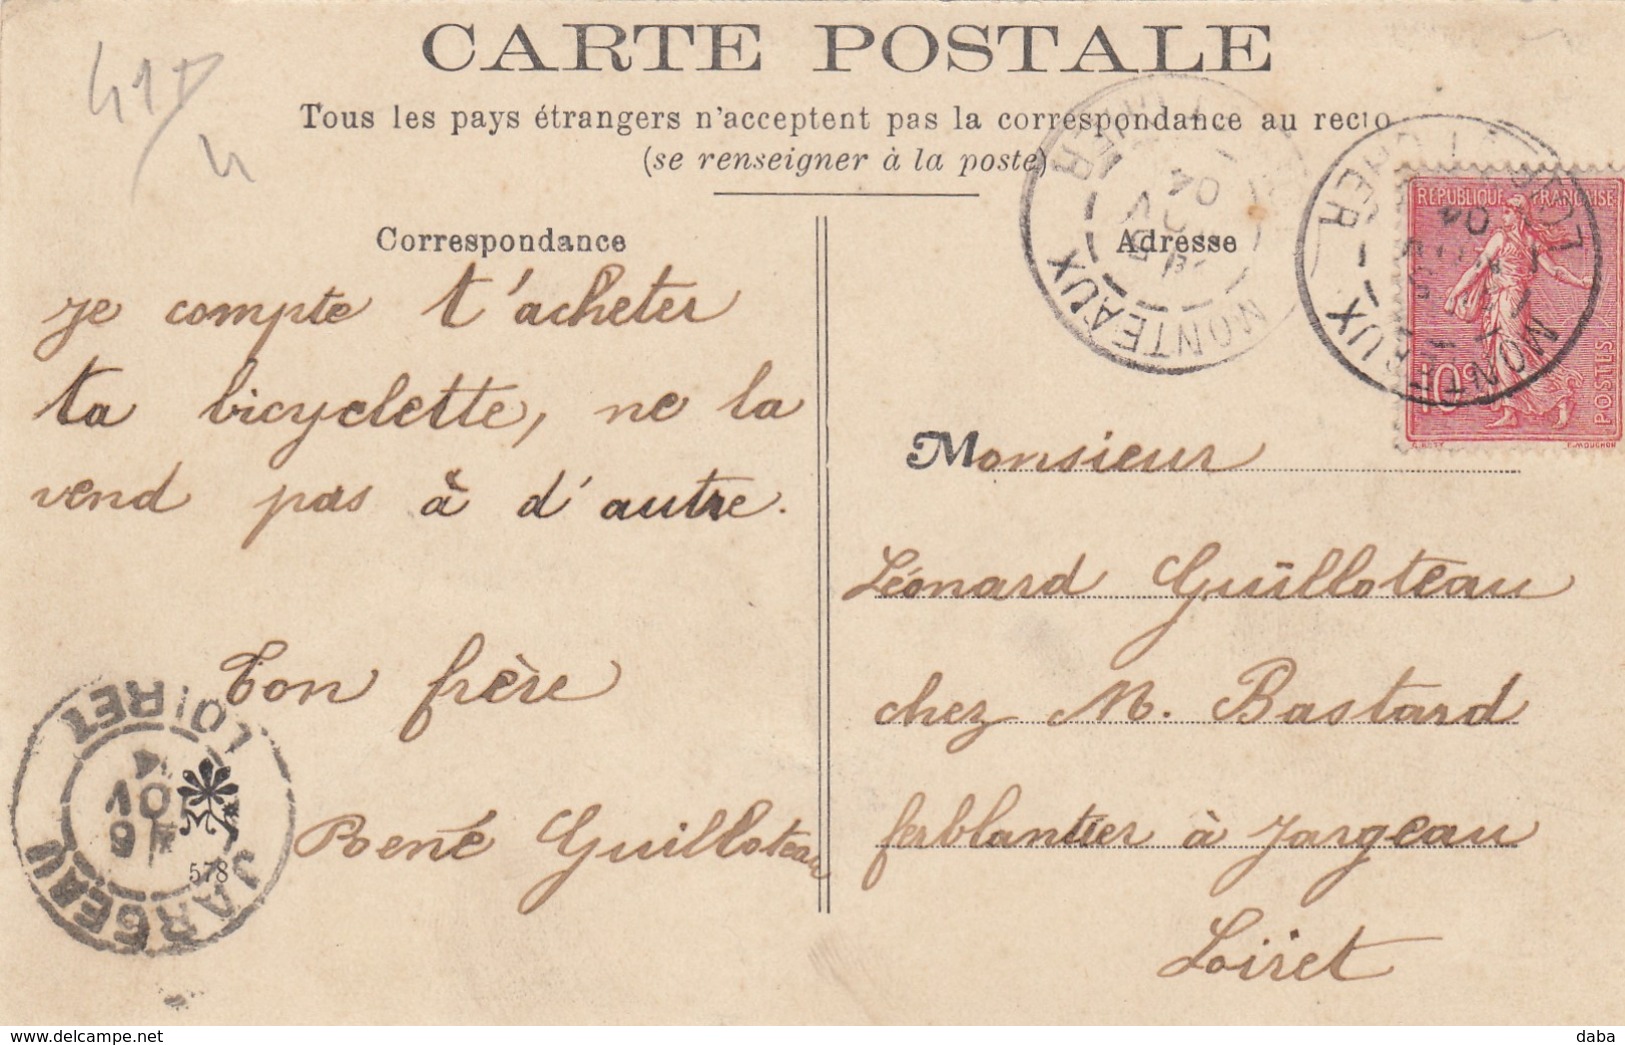 CARTE POSTALE
Tous les pays étrangers n'acceptent pas la correspondance au recto
(se renseigner à la poste)
Correspondance
Adresse
je compte t'acheter
ta bicyclette, ne la
vend pas à d'autre.
Ton frère
René Guilloteau
Monsieur
Léonard Guilloteau
chez M. Bastard
ferblantier à Jargeau
Loiret
RÉPUBLIQUE FRANÇAISE
10c
POSTES
E. MOUCHON
MONTEAUX
CHER
04
MONTEAUX
LOIR ET CHER
04
JARGEAU
LOIRET
578
41
https://www.delcampe.net
daba